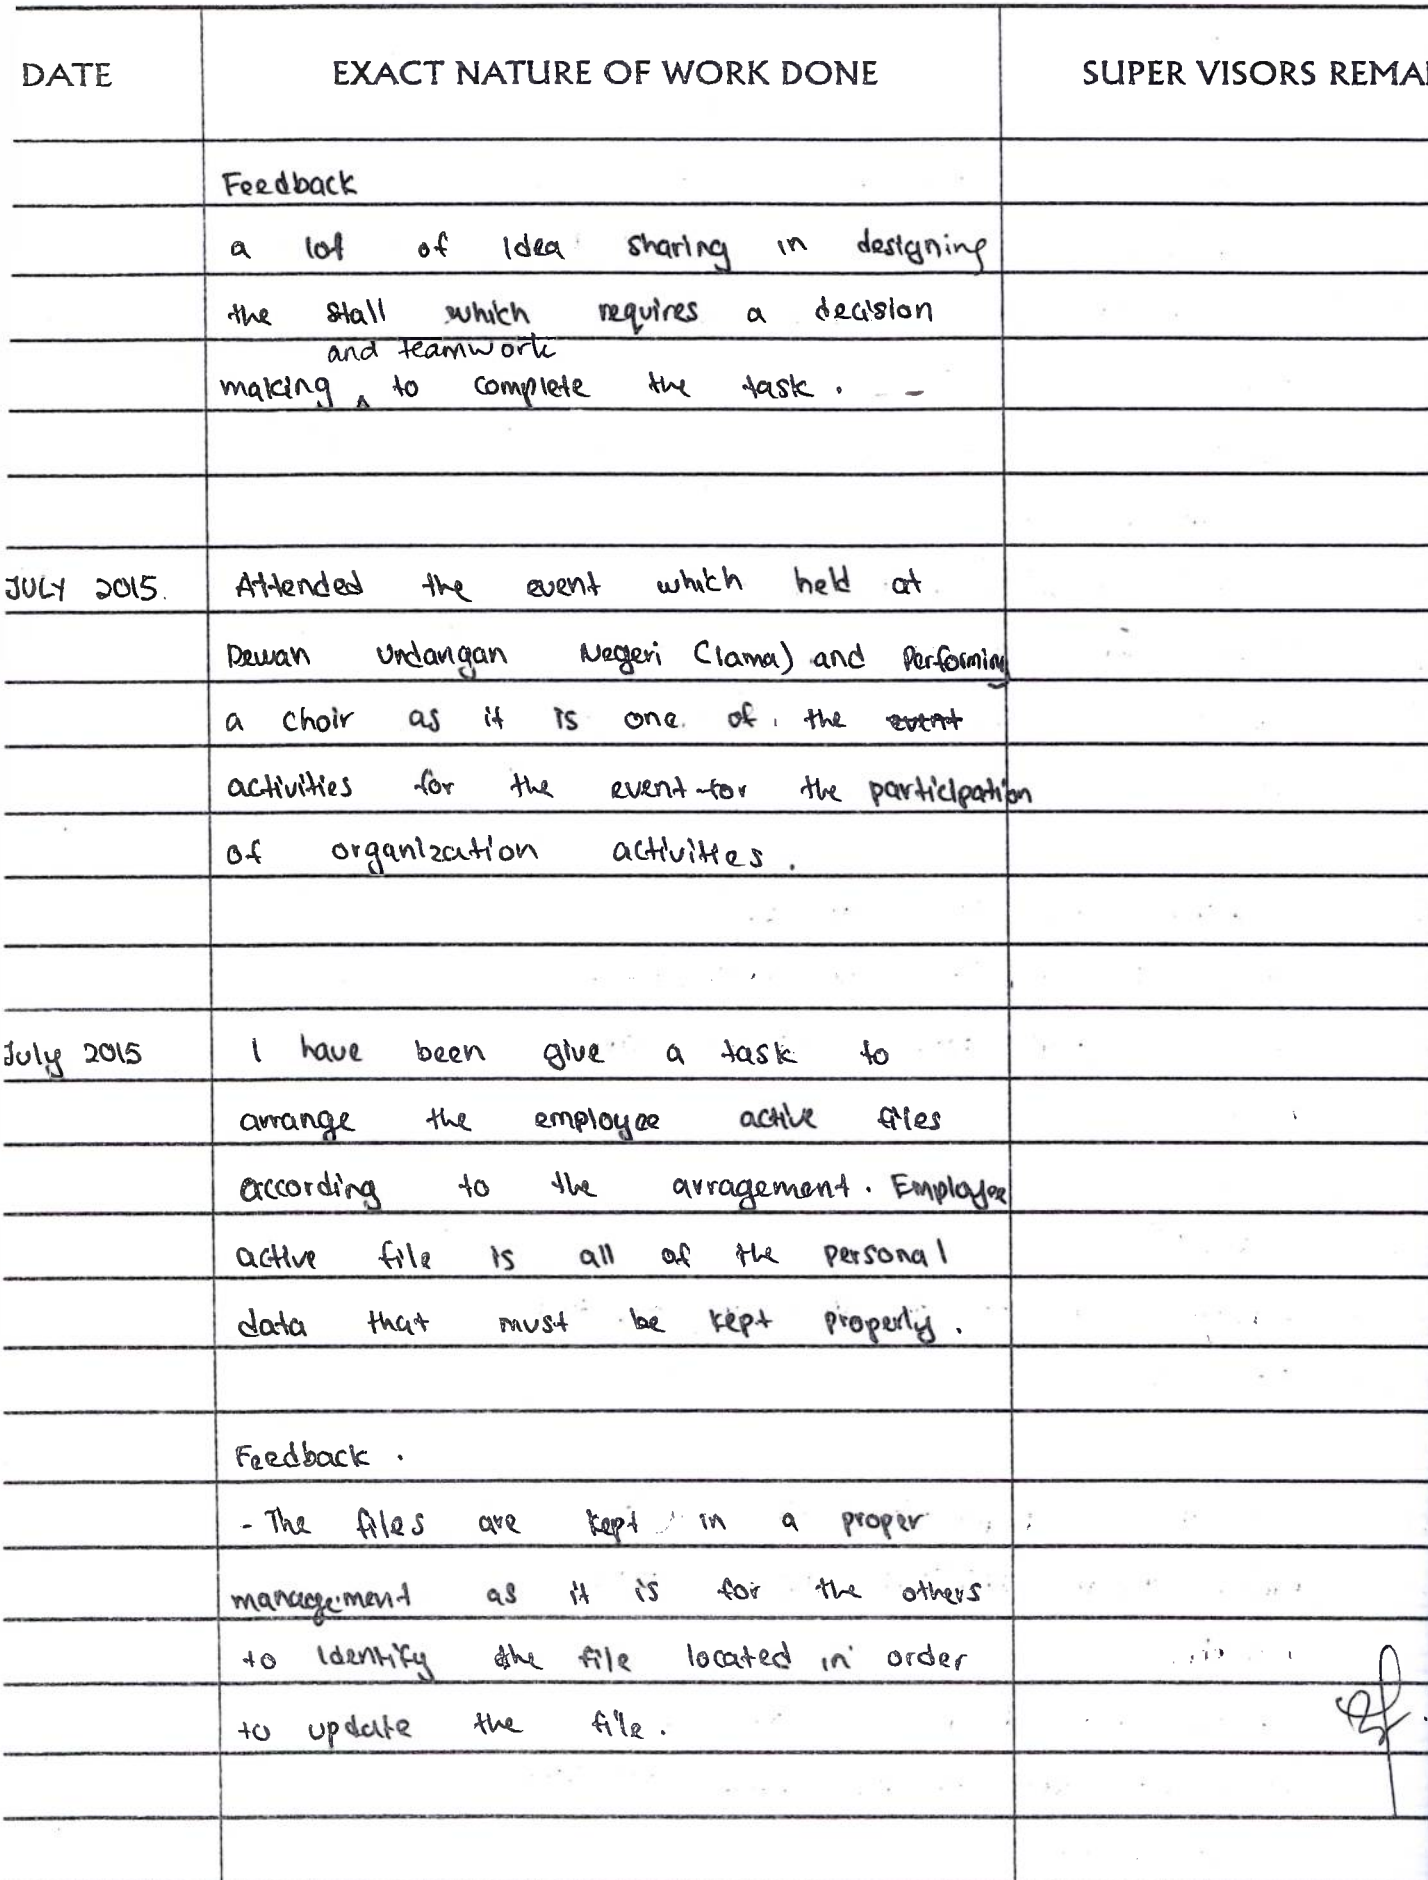 DATE EXACT NATURE OF WORK DONE SUPER VISORS REMA
Feedback
a lot of idea sharing in designing
the stall which requires a decision
and teamwork
making ^ to complete the task. -
JULY 2015. Attended the event which held at
Dewan Undangan Negeri (lama) and Performing
a choir as it is one of the event
activities for the event for the participation
of organization activities.
July 2015 I have been give a task to
arrange the employee active files
according to the arragement. Employee
active file is all of the personal
data that must be kept properly.
Feedback.
- The files are kept in a proper
management as it is for the others
to identify the file located in order
to update the file.